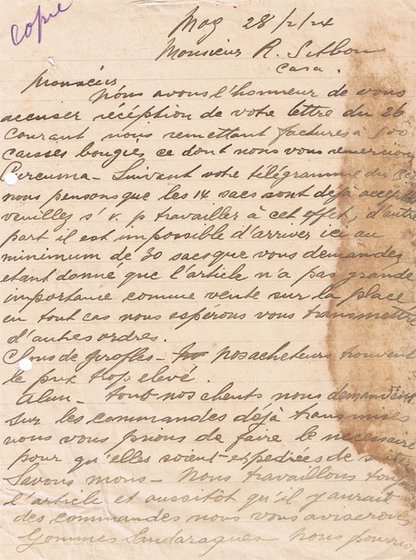 copie
Mog 28/2/24
Monsieur R. Sibboni
Casa.
Monsieur
Nous avons l'honneur de vous
accuser réception de votre lettre du 26
courant nous remettant factures à 500
caisses bougies, ce dont nous vous remercions
Curcuma - Suivant votre télégramme du
nous pensons que les 14 sacs sont déjà accep
veuillez s'v. p travailler à cet effet, d'autre
part il est impossible d'arriver ici au
minimum de 30 sacs que vous demandez
etant donné que l'article n'a pas grande
importance comme vente sur la place
en tout cas nous esperons vous transmettre
d'autres ordres.
Clous de girofles - Nos acheteurs trouvent
le prix trop elevé.
Alun - tous nos clients nous demandent
sur les commandes déjà transmises
nous vous prions de faire le necessaire
pour qu'elles soient expediées de
Savons mous - Nous travaillons tous
l'article et aussitot qu'il y aurait
des commandes nous vous aviserons
Gommes Sandaraques - Nous pourrions